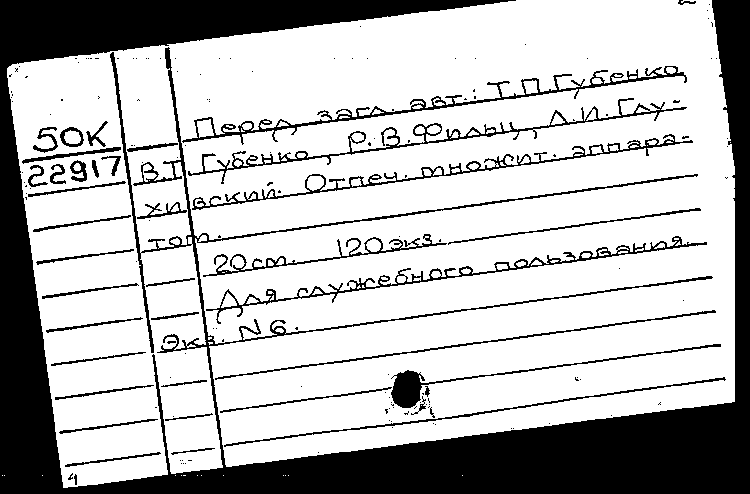 Перед загл. авт.: Т.П.Губенко,
50К
22917
В.Т. Губенко, Р.В.Фильц, Л.И. Глу-
хивский. Отпеч. множит. аппара-
том.
20 см. 120 экз.
Для служебного пользования.
Экз. N 6.
4